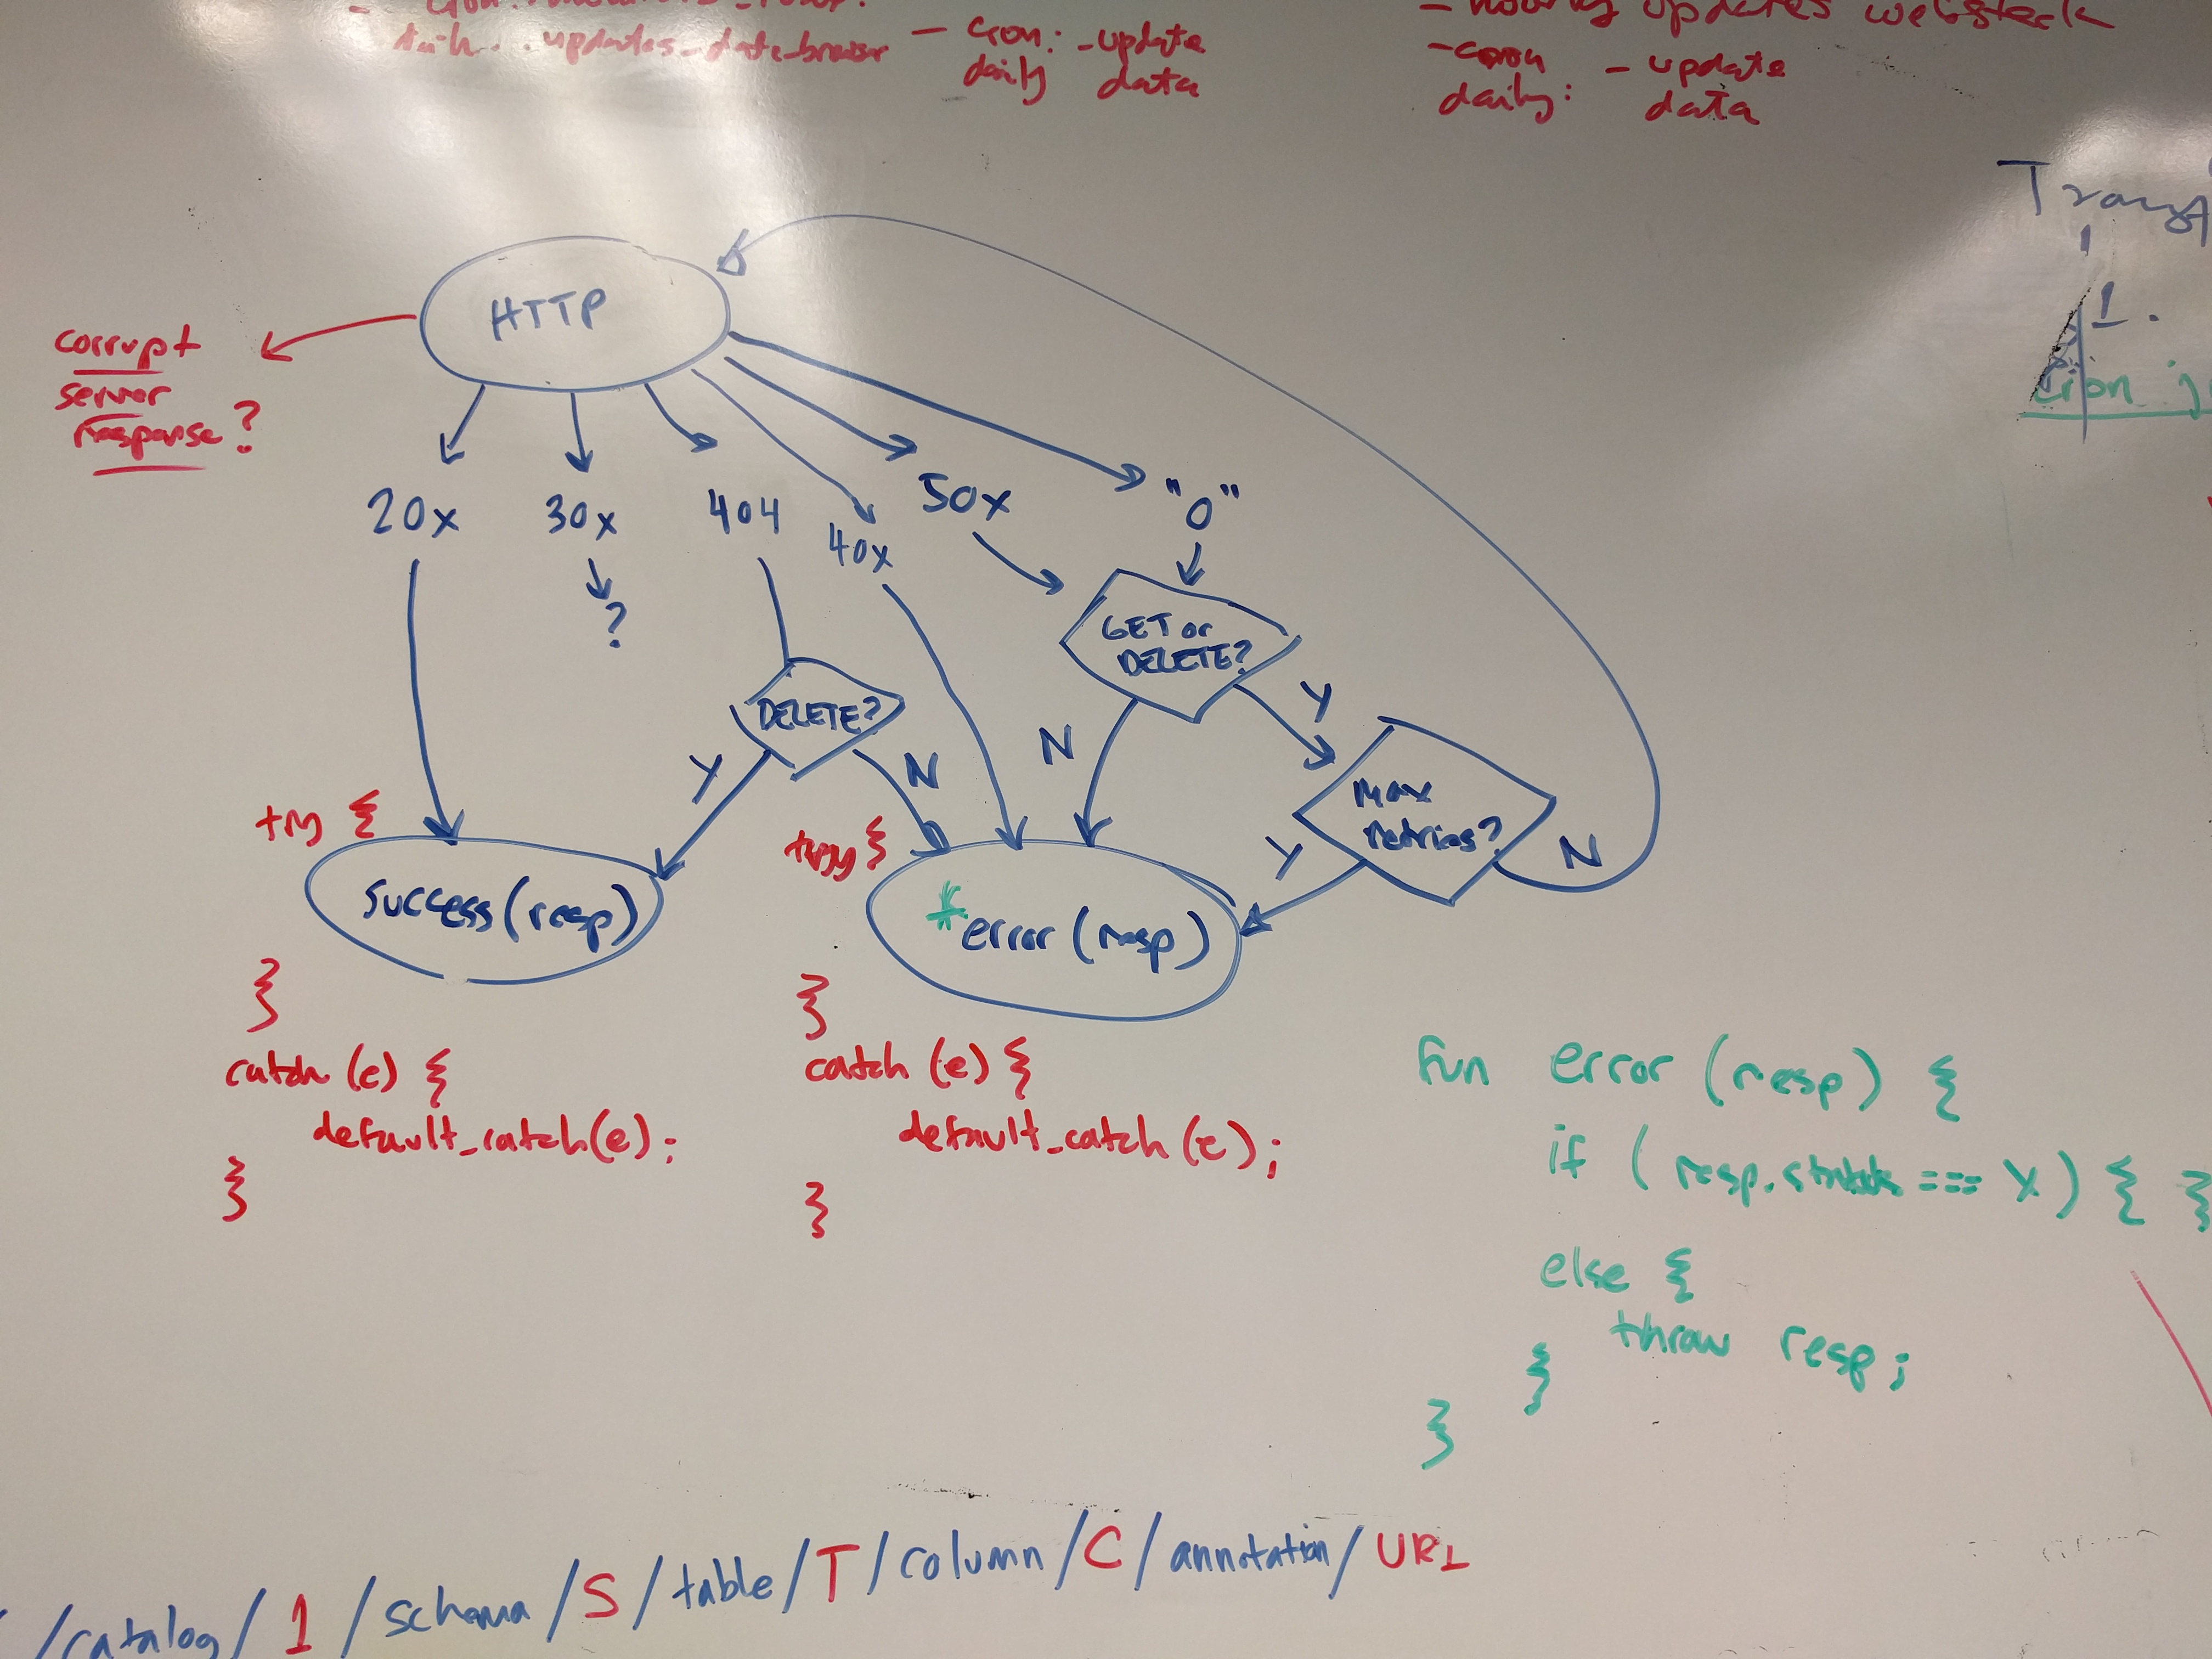 daily updates_data_browser
- cron: - update
daily data
- hourly updates webstack
- cron - update
daily: data
1.
cron j
HTTP
corrupt
server
response?
20x
30x
404
40x
50x
"0"
?
GET or
DELETE?
DELETE?
Y
N
N
Y
Max
retries?
Y
N
try {
success(resp)
}
catch (e) {
default_catch(e);
}
try {
* error (resp)
}
catch (e) {
default_catch (e);
}
fun error (resp) {
if (resp.status === X) { }
else {
throw resp;
}
}
/catalog/1/schema/S/table/T/column/C/annotation/URL